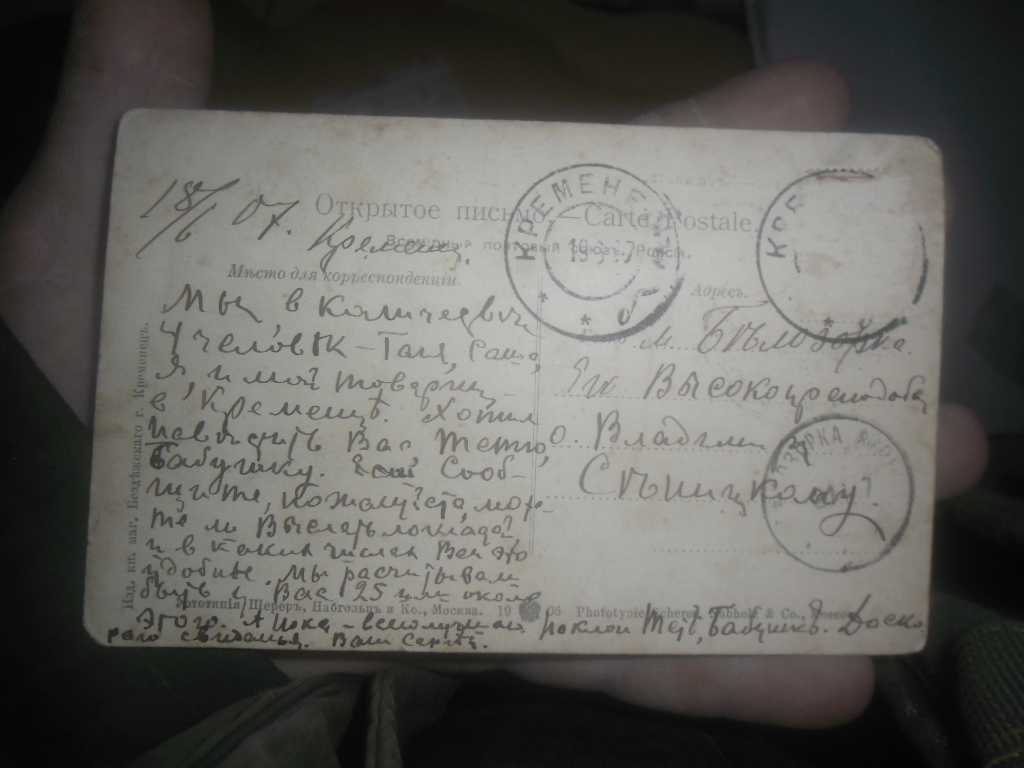 18/6 07. Кременец.
Открытое письмо. — Carte Postale.
Всемірный почтовый союзъ. Россія.
Мѣсто для корреспонденціи.
Адресъ.
КРЕМЕНЕЦ
19 7
КРЕ
Мы в количествѣ
4 человѣк – Таня, Саша,
Я, и мой товарищ
в Кременцѣ. Хотим
навѣстить Вас, тетю,
бабушку. Сооб-
щите, пожалуйста, може-
те ли Выслать лошадей
и в каких числах Вам это
удобнѣе. Мы расчитываем
быть у Вас 25 или около
этого. А пока – всего лучшаго
Поклон Тетѣ, Бабушкѣ. До ско
раго свиданья. Ваш Сергѣй.
м. Бѣлозорка.
Его Высокопреподобію
о. Владим
Сѣницкому.
ЗОРКА
Изд. кн. маг. Бездѣжскаго г. Кременецъ.
Фототипія Шереръ, Набгольцъ и Ко., Москва. 19 06 Phototypie Scherer, Nabholz & Co., Moscou